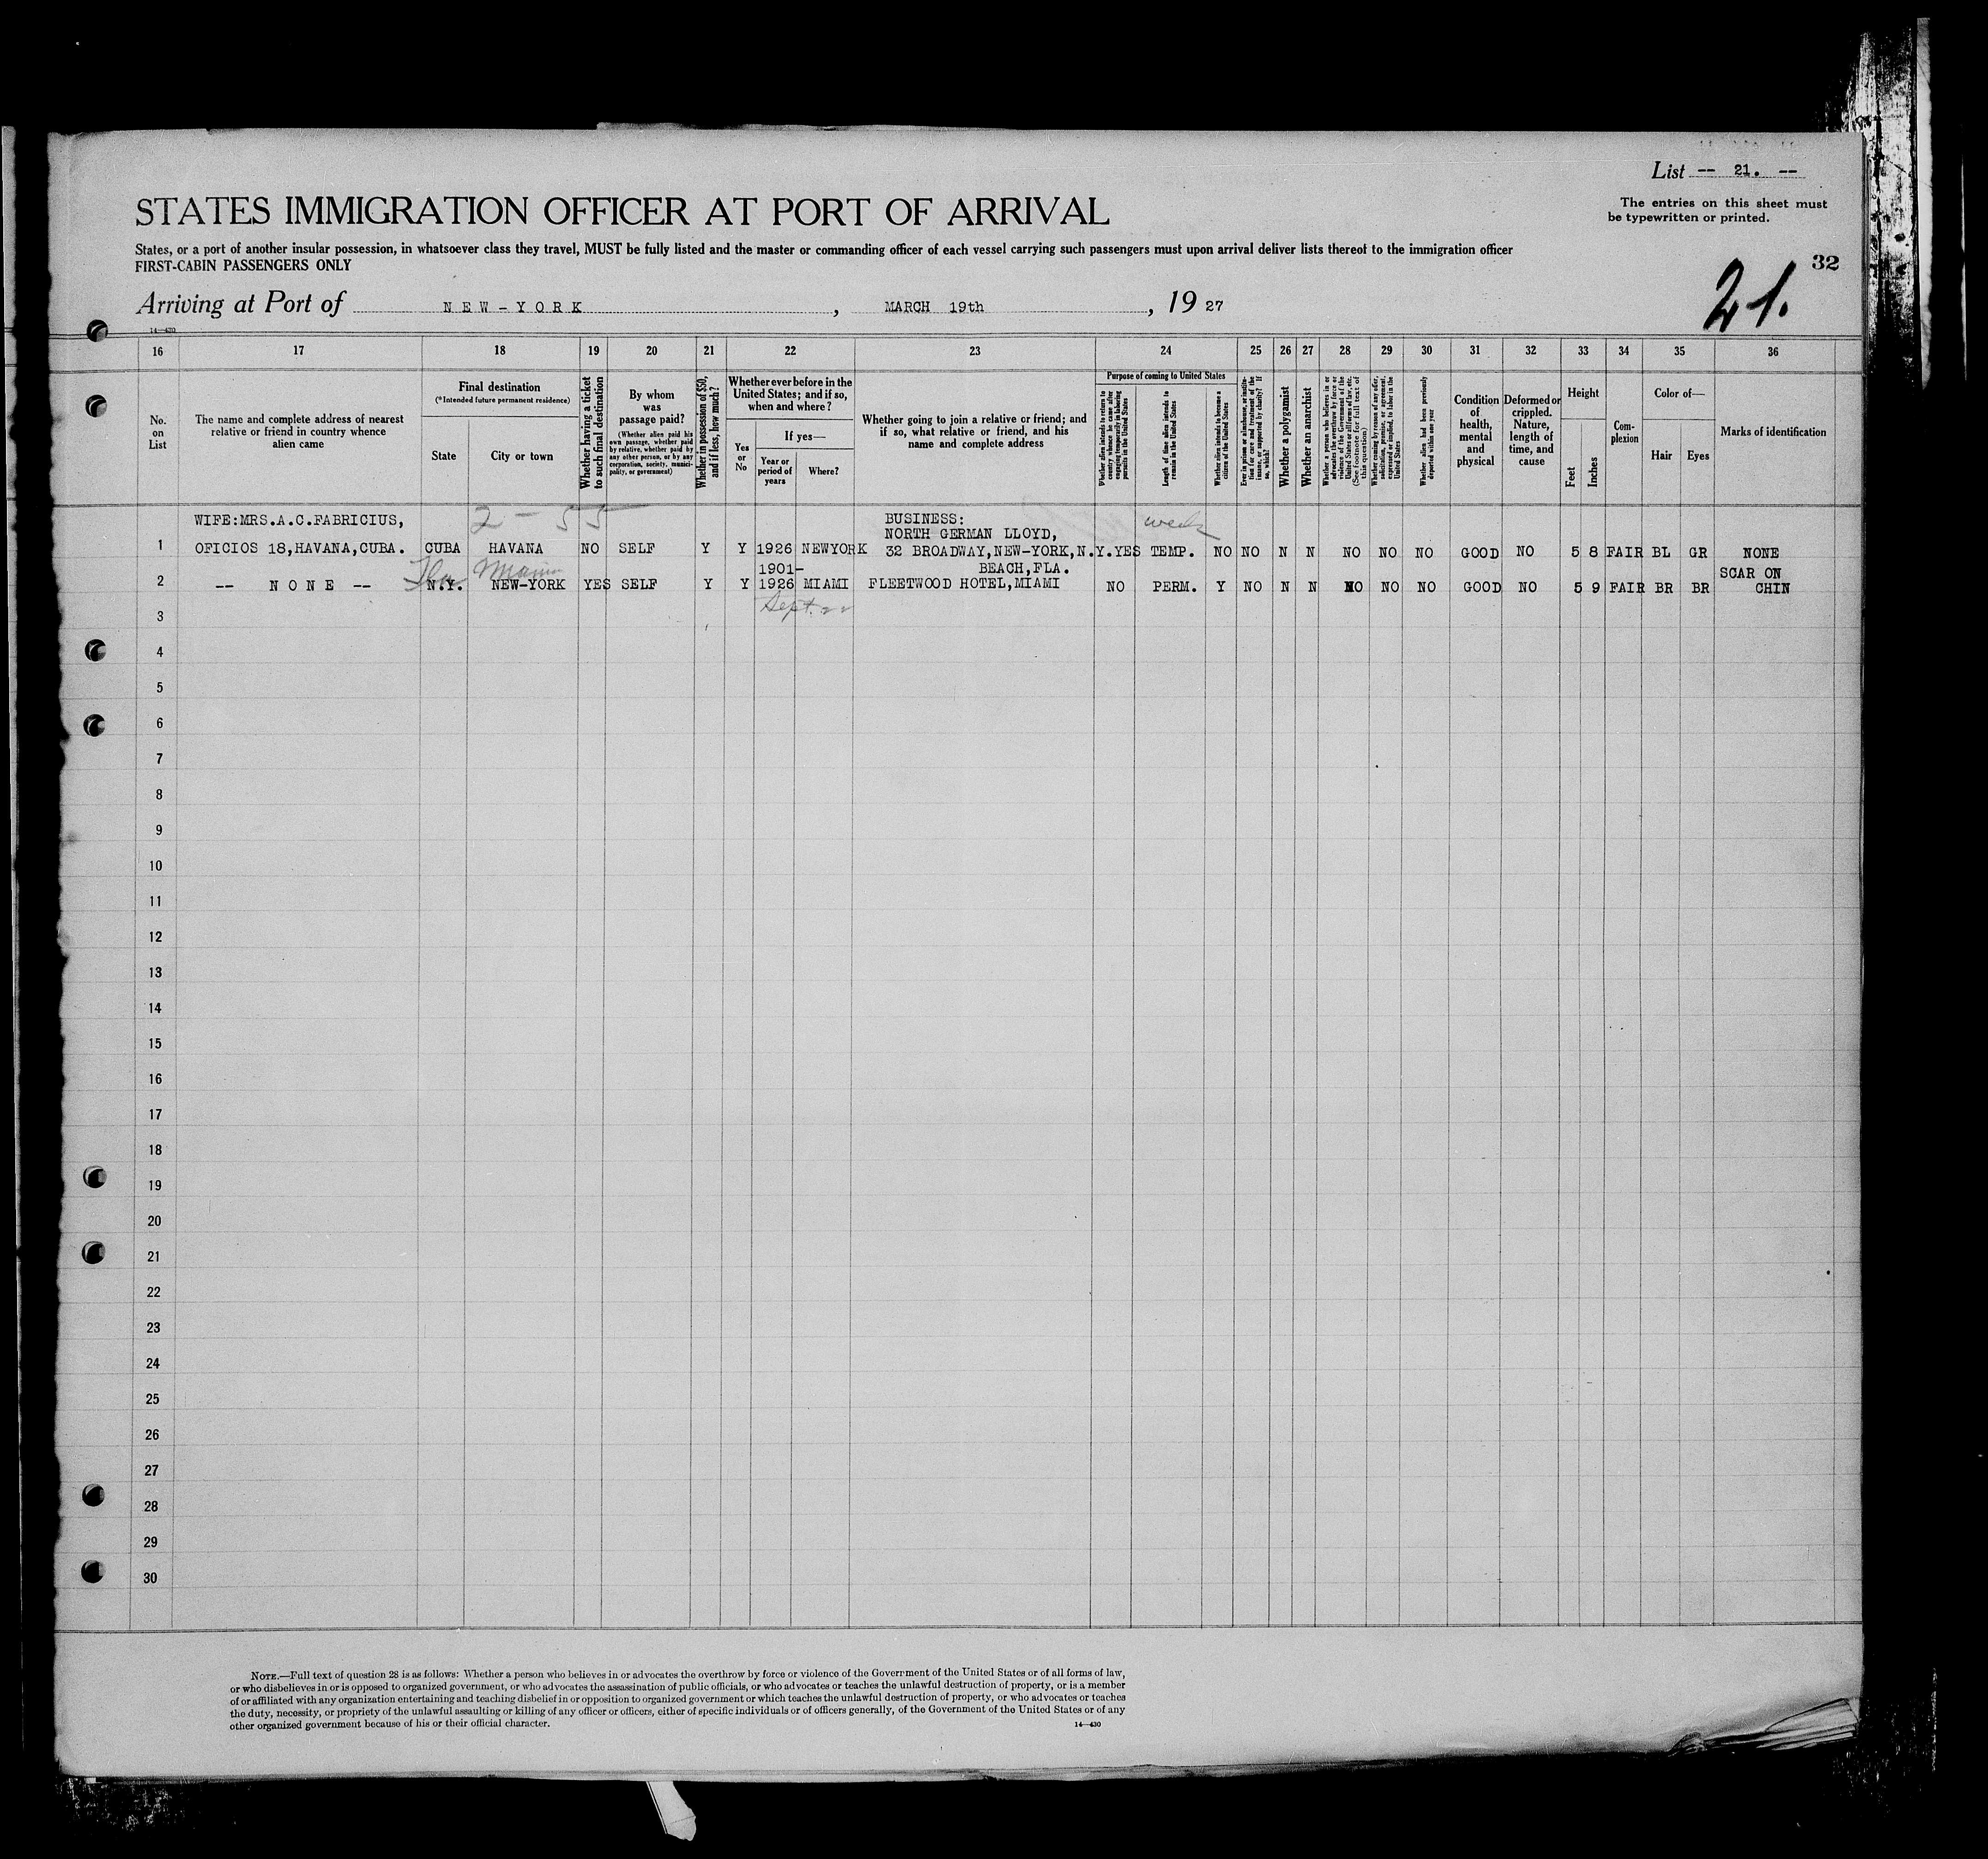 List -- 21. --
STATES IMMIGRATION OFFICER AT PORT OF ARRIVAL
The entries on this sheet must
be typewritten or printed.
States, or a port of another insular possession, in whatsoever class they travel, MUST be fully listed and the master or commanding officer of each vessel carrying such passengers must upon arrival deliver lists thereof to the immigration officer
FIRST-CABIN PASSENGERS ONLY
32
21.
Arriving at Port of NEW-YORK, MARCH 19th, 19 27
14—430
16 17 18 19 20 21 22 23 24 25 26 27 28 29 30 31 32 33 34 35 36
No. on List
The name and complete address of nearest
relative or friend in country whence
alien came
Final destination
(*Intended future permanent residence)
State
City or town
Whether having a ticket
to such final destination
By whom
was
passage paid?
(Whether alien paid his
own passage, whether paid
by relative, whether paid by
any other person, or by any
corporation, society, munici-
pality, or government)
Whether in possession of $50,
and if less, how much?
Whether ever before in the
United States; and if so,
when and where?
Yes
or
No
If yes—
Year or
period of
years
Where?
Whether going to join a relative or friend; and
if so, what relative or friend, and his
name and complete address
Purpose of coming to United States
Whether alien intends to return to
country whence he came after
engaging temporarily in laboring
pursuits in the United States
Length of time alien intends to
remain in the United States
Whether alien intends to become a
citizen of the United States
Ever in prison or almshouse, or institu-
tion for care and treatment of the
insane, or supported by charity? If
so, which?
Whether a polygamist
Whether an anarchist
Whether a person who believes in or
advocates the overthrow by force or
violence of the Government of the
United States or all forms of law, etc.
(See footnote for full text of
this question)
Whether coming by reason of any offer,
solicitation, promise, or agreement,
expressed or implied, to labor in the
United States
Whether alien had been previously
deported within one year
Condition
of
health,
mental
and
physical
Deformed or
crippled.
Nature,
length of
time, and
cause
Height
Feet
Inches
Com-
plexion
Color of—
Hair
Eyes
Marks of identification
WIFE:MRS.A.C.FABRICIUS, 2 - 55 BUSINESS: week
NORTH GERMAN LLOYD,
1 OFICIOS 18,HAVANA,CUBA. CUBA HAVANA NO SELF Y Y 1926 NEWYORK 32 BROADWAY,NEW-YORK,N.Y. YES TEMP. NO NO N N NO NO NO GOOD NO 5 8 FAIR BL GR NONE
Fla. Miami 1901- BEACH,FLA. SCAR ON
2 -- NONE -- N.Y. NEW-YORK YES SELF Y Y 1926 MIAMI FLEETWOOD HOTEL,MIAMI NO PERM. Y NO N N NO NO NO GOOD NO 5 9 FAIR BR BR CHIN
Sept. 22
3
4
5
6
7
8
9
10
11
12
13
14
15
16
17
18
19
20
21
22
23
24
25
26
27
28
29
30
NOTE.—Full text of question 28 is as follows: Whether a person who believes in or advocates the overthrow by force or violence of the Government of the United States or of all forms of law,
or who disbelieves in or is opposed to organized government, or who advocates the assassination of public officials, or who advocates or teaches the unlawful destruction of property, or is a member
of or affiliated with any organization entertaining and teaching disbelief in or opposition to organized government or which teaches the unlawful destruction of property, or who advocates or teaches
the duty, necessity, or propriety of the unlawful assaulting or killing of any officer or officers, either of specific individuals or of officers generally, of the Government of the United States or of any
other organized government because of his or their official character.
14—430